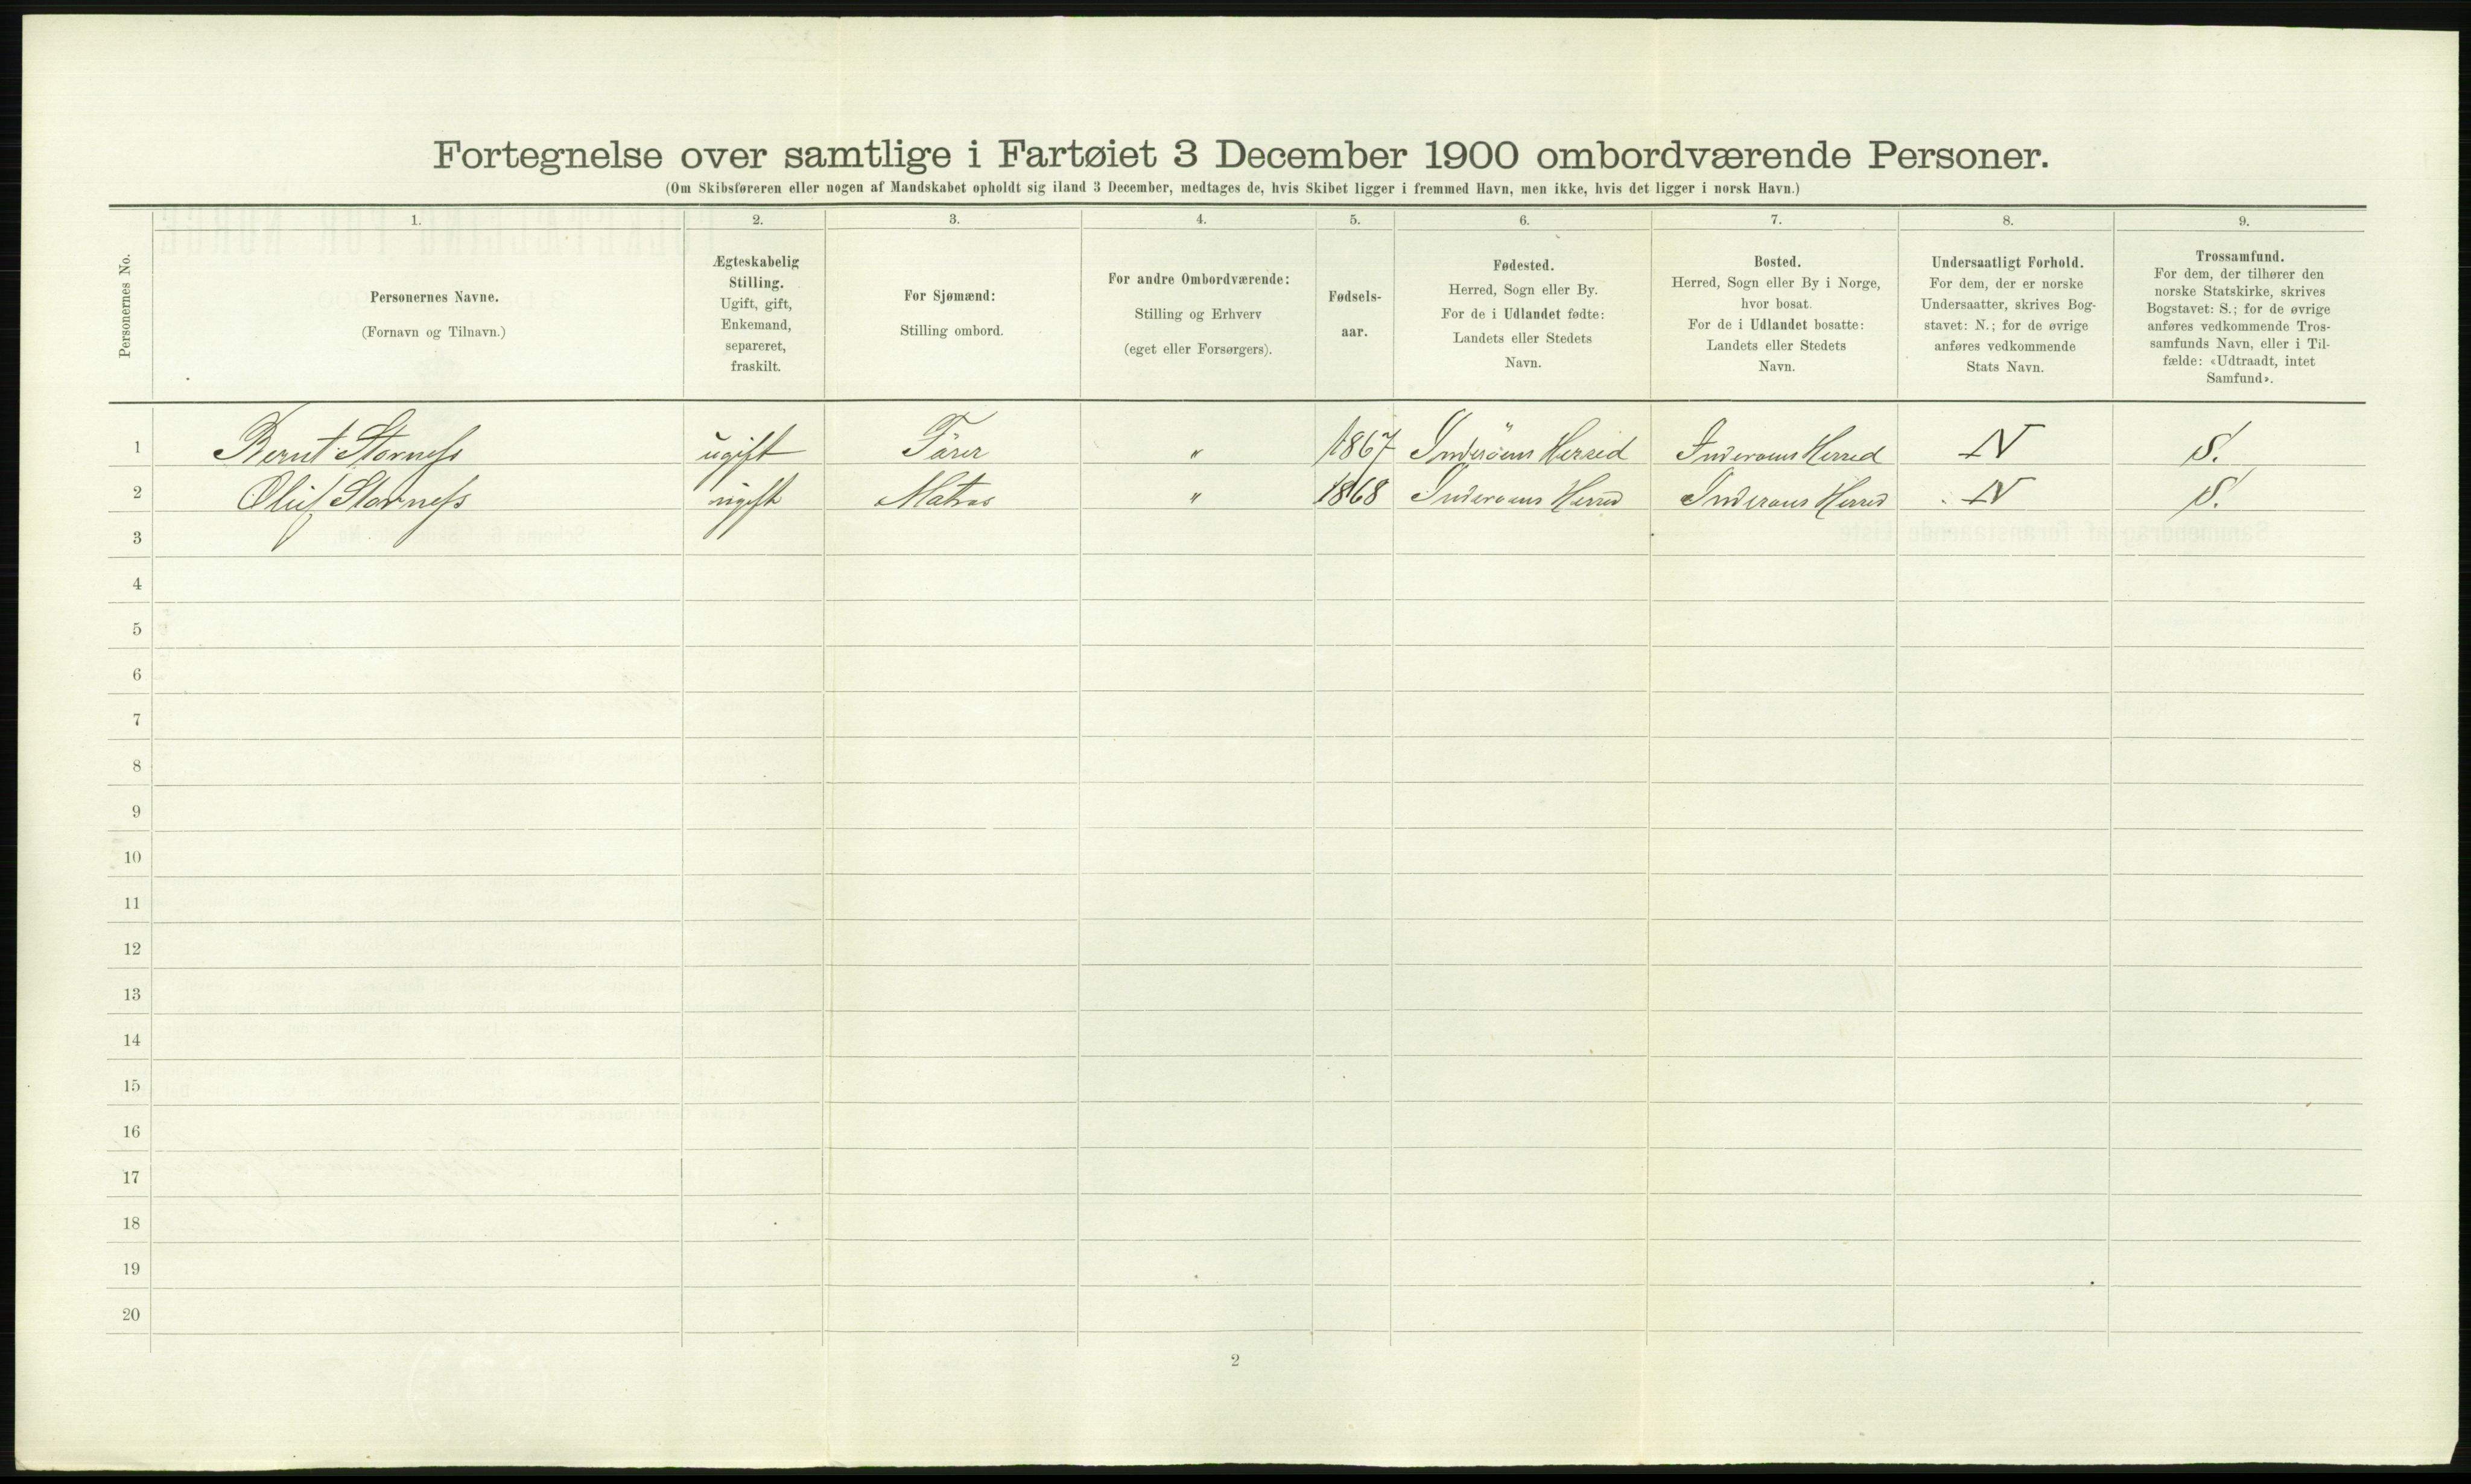 Fortegnelse over samtlige i Fartøiet 3 December 1900 ombordværende Personer.
(Om Skibsføreren eller nogen af Mandskabet opholdt sig iland 3 December, medtages de, hvis Skibet ligger i fremmed Havn, men ikke, hvis det ligger i norsk Havn.)
Personernes No.
1.
2.
3.
4.
5.
6.
7.
8.
9.
Personernes Navne.
(Fornavn og Tilnavn.)
Ægteskabelig
Stilling.
Ugift, gift,
Enkemand,
separeret,
fraskilt.
For Sjømænd:
Stilling ombord.
For andre Ombordværende:
Stilling og Erhverv
(eget eller Forsørgers).
Fødsels-
aar.
Fødested.
Herred, Sogn eller By.
For de i Udlandet fødte:
Landets eller Stedets
Navn.
Bosted.
Herred, Sogn eller By i Norge,
hvor bosat.
For de i Udlandet bosatte:
Landets eller Stedets
Navn.
Undersaatligt Forhold.
For dem, der er norske
Undersaatter, skrives Bog-
stavet: N.; for de øvrige
anføres vedkommende
Stats Navn.
Trossamfund.
For dem, der tilhører den
norske Statskirke, skrives
Bogstavet: S.; for de øvrige
anføres vedkommende Tros-
samfunds Navn, eller i Til-
fælde: «Udtraadt, intet
Samfund».
1 Bernt Storness ugift Förer " 1867 Inderöens Herred Inderoens Herred N S.
2 Oluf Storness ugift Matros " 1868 Inderoens Herred Inderoens Herred N S.
3
4
5
6
7
8
9
10
11
12
13
14
15
16
17
18
19
20
2